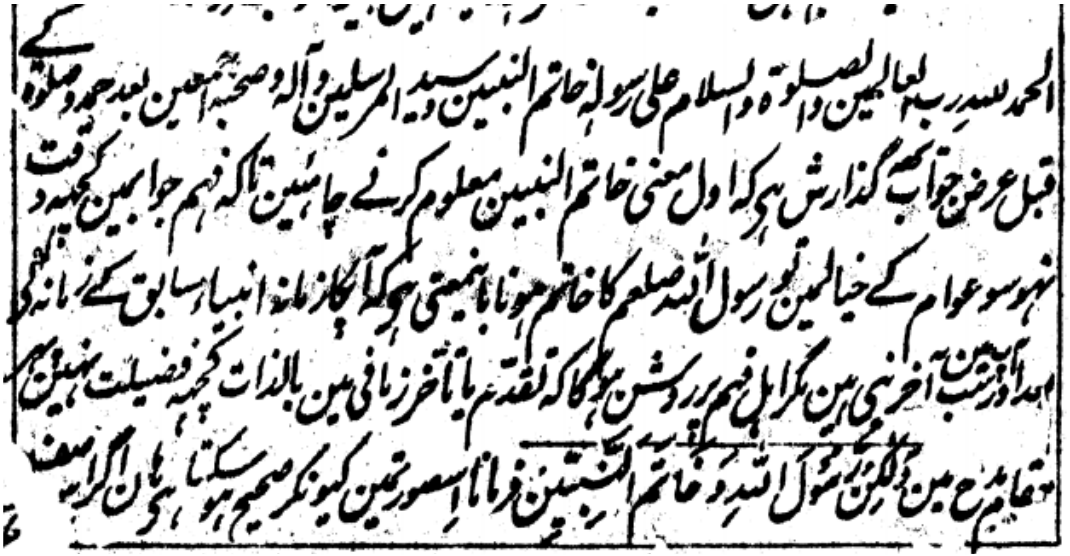 الحمد للہ رب العالمین والصلوۃ والسلام علی رسولہ خاتم النبیین وسید المرسلین وآلہ وصحبہ اجمعین بعد حمد وصلوۃ کے
قبل عرض جواب یہ گذارش ہی کہ اول معنی خاتم النبیین معلوم کرنے چاہئین تاکہ فہم جوابمین کچھہ دقت
نہو سو عوام کے خیالمین تو رسول اللہ صلعم کا خاتم ہونا باینمعنی ہی کہ آپکا زمانہ انبیاء سابق کے زمانہ کی
بعد اور آپ سب مین آخر نبی ہین مگر اہل فہم پر روشن ہوگا کہ تقدم یا تأخر زمانی مین بالذات کچھہ فضیلت نہین پھر
مقام مدح مین وَلٰكِنْ رَسُوْلَ اللّٰهِ وَخَاتَمَ النَّبِيِّيْنَ فرمانا اسصورتمین کیونکر صحیح ہوسکتا ہی ہان اگر اس